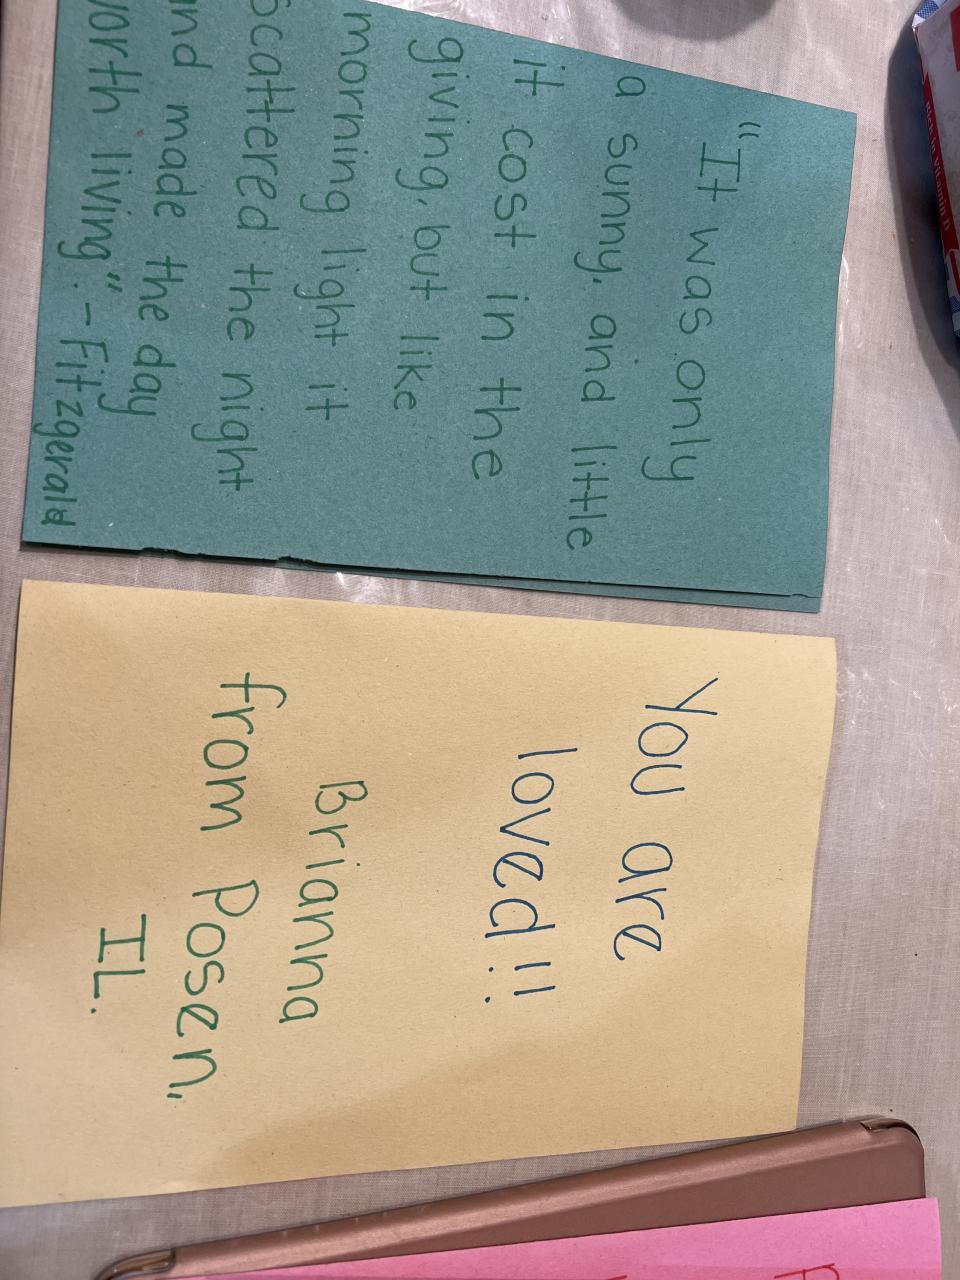 "It was only
a sunny, and little
it cost in the
giving, but like
morning light it
scattered the night
and made the day
worth living". - Fitzgerald
You are
loved!!
Brianna
from Posen,
IL.
Rich in Vitamin D